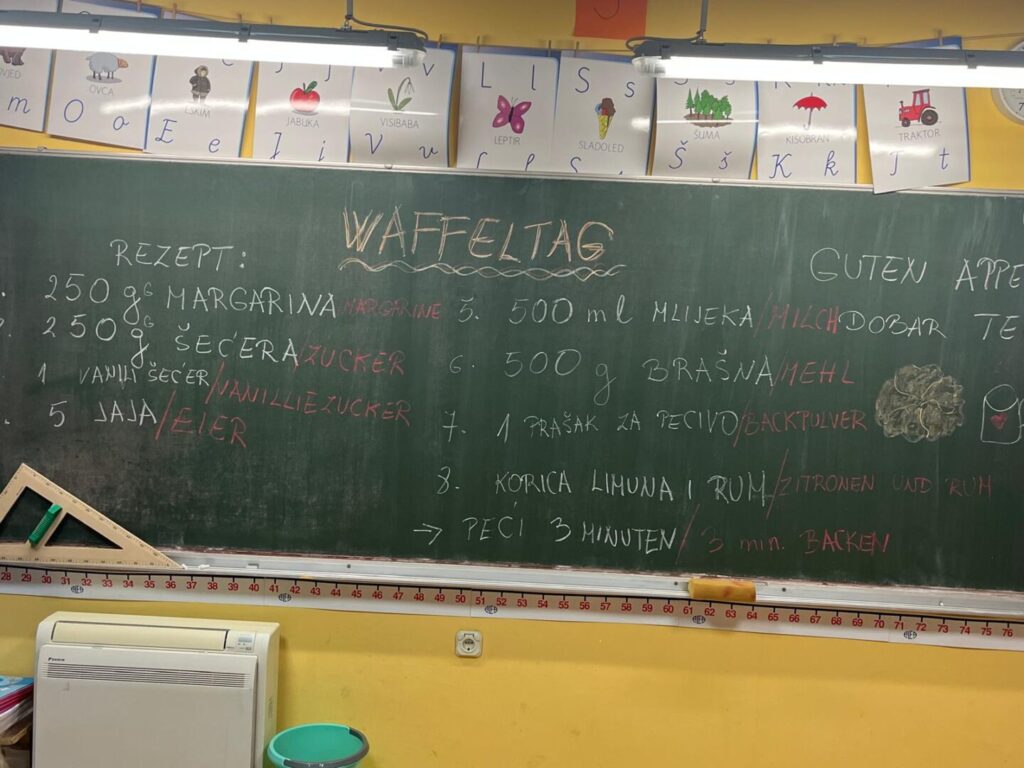 VJED
m
OVCA
O o
ESKIM
E e
J j
JABUKA
J j
V v
VISIBABA
V v
L l
LEPTIR
S s
SLADOLED
ŠUMA
Š š
KIŠOBRAN
K k
TRAKTOR
T t
WAFFELTAG
REZEPT:
250 g MARGARINA MARGARINE
250 g ŠEĆERA/ZUCKER
1 VANILI ŠEĆER/VANILLIEZUCKER
5 JAJA/EIER
5. 500 ml MLIJEKA/MILCH
6. 500 g BRAŠNA/MEHL
7. 1 PRAŠAK ZA PECIVO/BACKPULVER
8. KORICA LIMUNA I RUM/ZITRONEN UND RUM
→ PEĆI 3 MINUTEN/3 min. BACKEN
GUTEN APPE
DOBAR TE
28 29 30 31 32 33 34 35 36 37 38 39 40 41 42 43 44 45 46 47 48 49 50 51 52 53 54 55 56 57 58 59 60 61 62 63 64 65 66 67 68 69 70 71 72 73 74 75 76
DAIKIN